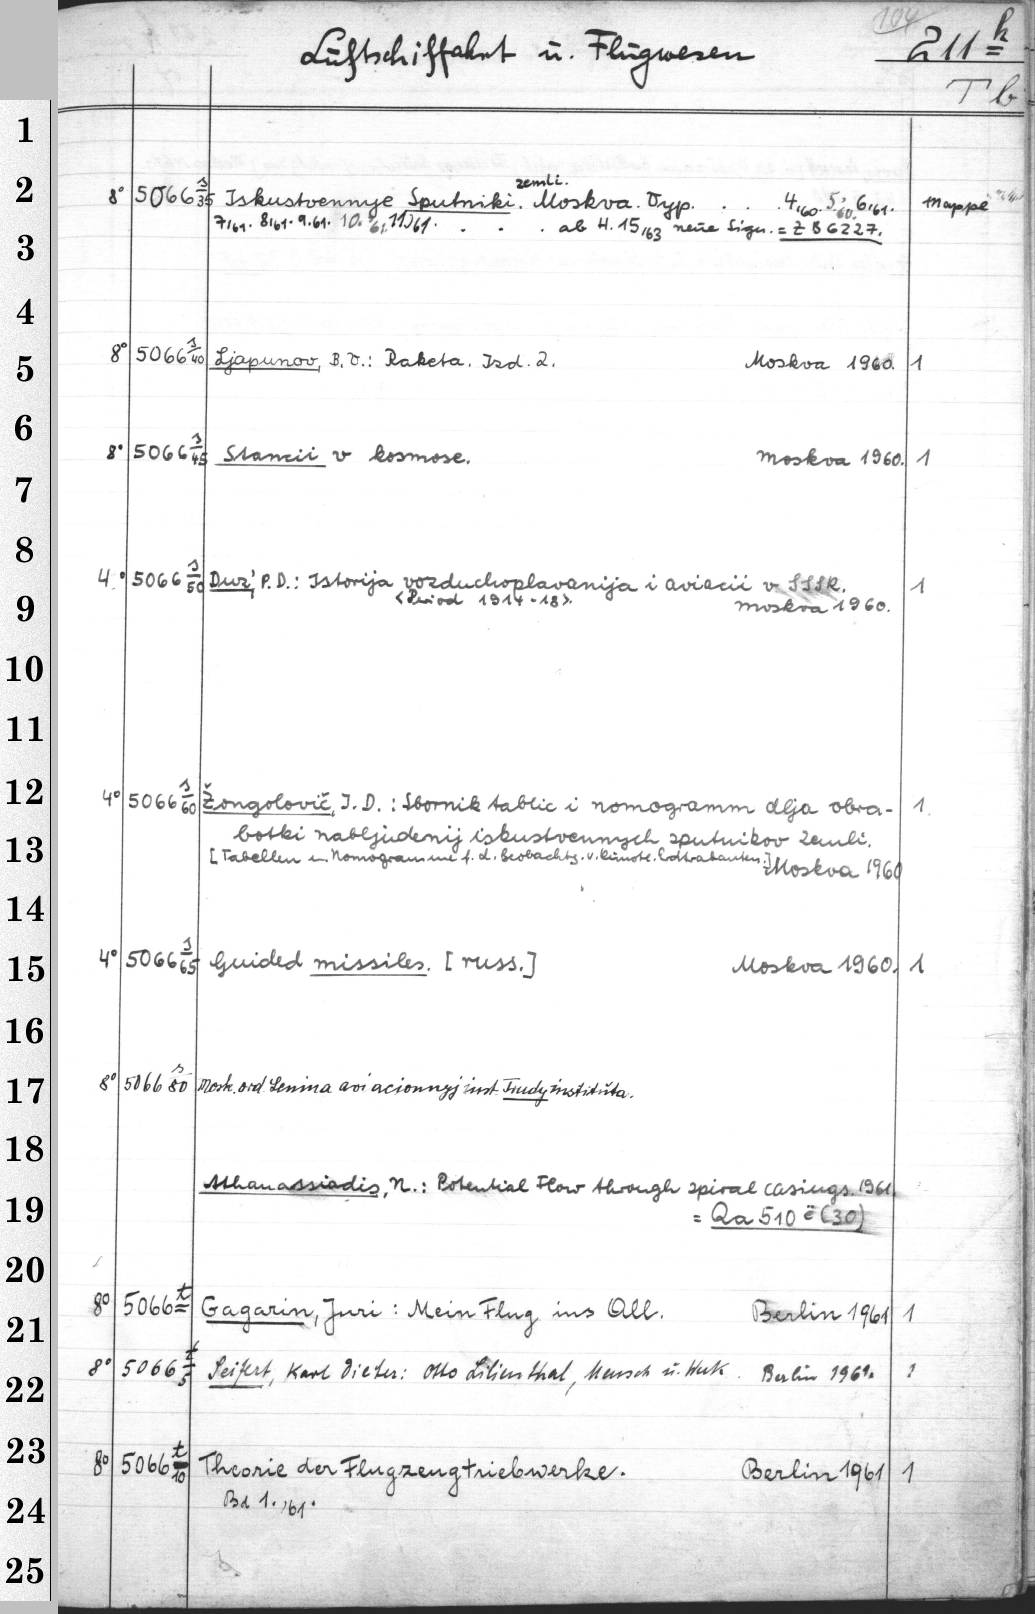 104
Luftschiffahrt u. Flugwesen 211 h
Tb
1
zemli.
2 8° 5066 s/35 Iskustvennye Sputniki. Moskva. Vyp. . . . 4,60. 5,60. 6,61. Mappe
7,61. 8,61. 9.61. 10.61, 11,61. . . . ab H. 15,63 neue Sign. = Z B 6227.
3
4
5 8° 5066 s/40 Ljapunov, B. V.: Raketa. Izd. 2. Moskva 1960. 1
6
8° 5066 s/45 Stancii v kosmose. Moskva 1960. 1
7
8
4° 5066 s/50 Duz', P. D.: Istorija vozduchoplavanija i aviacii v SSSR. 1
9 <Period 1914-18>. Moskva 1960.
10
11
12 4° 5066 s/60 Žongolovič, I. D.: Sbornik tablic i nomogramm dlja obra- 1.
botki nabljudenij iskustvennych sputnikov zemli.
13 [Tabellen u. Nomogramme f. d. Beobachtg. v. künstl. Erdtrabanten.]
Moskva 1960
14
15 4° 5066 s/65 Guided missiles. [russ.] Moskva 1960. 1
16
17 8° 5066 s/80 Mosk. ord Lenina aviacionnyj inst. Trudy instituta.
18
Athanassiadis, N.: Potential Flow through spiral casings. 1961.
19 = Qa 510 ë (30)
20
8° 5066 t Gagarin, Juri: Mein Flug ins All. Berlin 1961 1
21
8° 5066 t/5 Seifert, Karl Dieter: Otto Lilienthal, Mensch u. Werk. Berlin 1961. 1
22
23 8° 5066 t/10 Theorie der Flugzeugtriebwerke. Berlin 1961 1
24 Bd 1.,61.
25